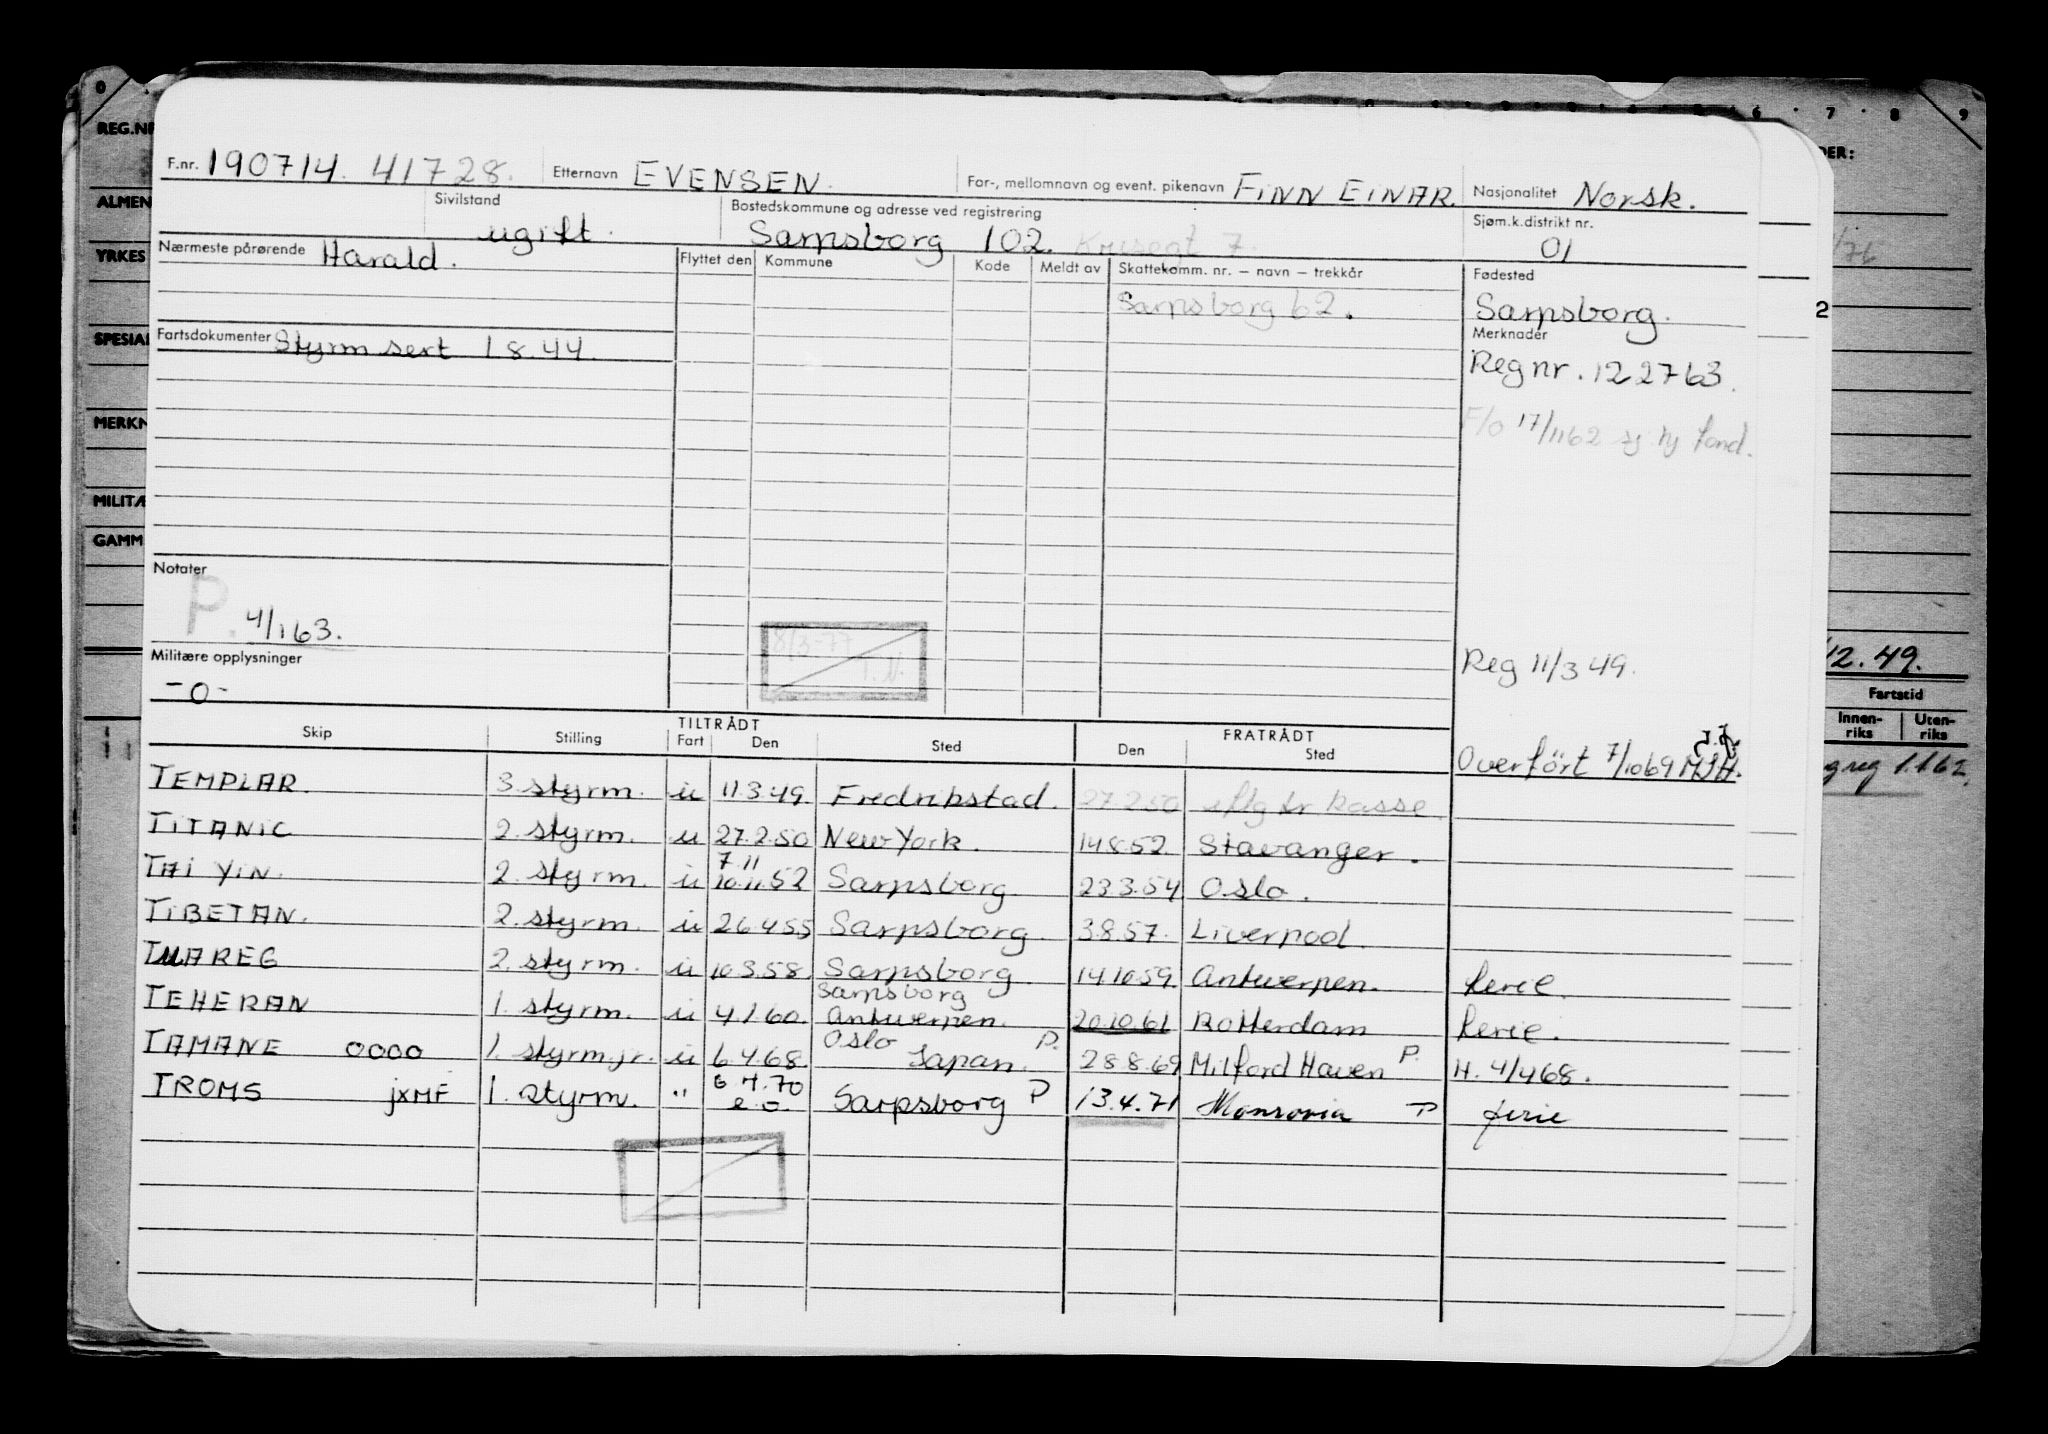 F.nr. 190714. 41728. Etternavn EVENSEN. For-, mellomnavn og event. pikenavn FINN EINAR. Nasjonalitet Norsk.
Sivilstand ugift. Bostedskommune og adresse ved registrering Sarpsborg 102. Sjøm.k.distrikt nr. 01
Nærmeste pårørende Harald. Flyttet den Kommune Kode Meldt av Skattekomm. nr. – navn – trekkår Fødested
Sarpsborg 62. Sarpsborg.
Fartsdokumenter Styrm sert 1 8.44. Merknader
Reg nr. 122763.
F/o 17/1162 sj. fond.
Notater
P. 4/163.
8/3-77
T.N.
Militære opplysninger
-0-
Reg 11/3 49.
Overført 7/1069 MJH.
TILTRÅDT FRATRÅDT
Skip Stilling Fart Den Sted Den Sted
TEMPLAR. 3. styrm. u 11.3.49. Fredrikstad. 27.2.50 kasse
TITANIC 2. styrm. u 27.2.50 New York. 14.8.52. Stavanger.
7.11
TAI YIN. 2. styrm. u 10.11.52 Sarpsborg 23.3.54 Oslo.
TIBETAN. 2. styrm. u 26.4.55 Sarpsborg. 3.8.57. Liverpool.
TUAREG 2. styrm. u 10.3.58. Sarpsborg 14.10.59. Antwerpen. ferie.
Sarpsborg
TEHERAN 1. styrm. u 4.1.60. Antwerpen. 20.10.61 Rotterdam ferie.
Oslo P.
TAMANE 0000 1. styrm.jr. u 6.4.68. Japan. 28.8.69 Milford Haven P. H. 4/468.
TROMS jXMF 1. styrm. " 6.4.70 Sarpsborg P 13.4.71 Monrovia P ferie
e.o.
REG.NR
ALMEN
YRKES
SPESIAL
MERKN
MILITÆ
GAMM
7 8 9
DER:
/76
2
/12.49.
Fartstid
Innen-riks Uten-riks
greg 1.1.62.